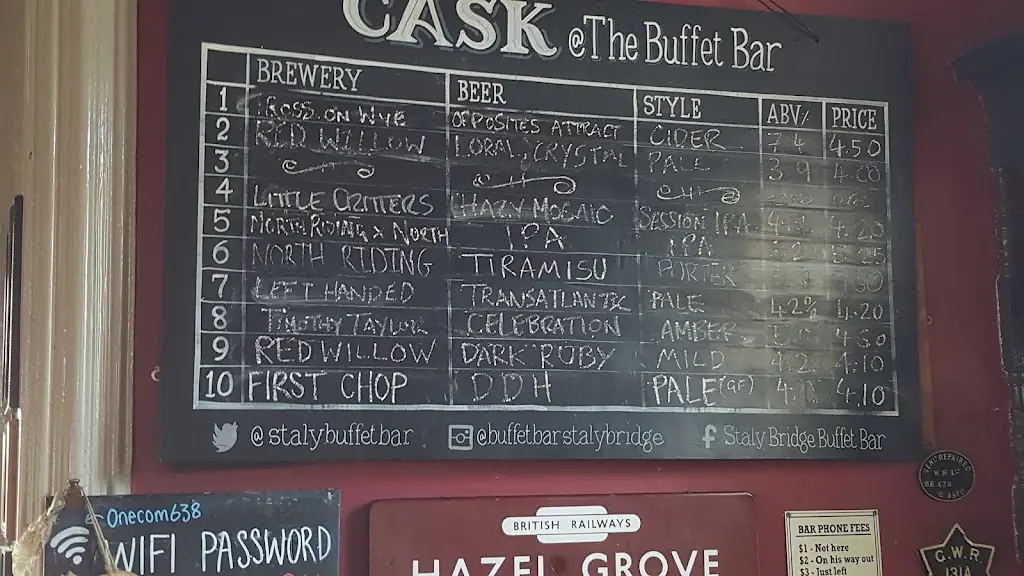 CASK @The Buffet Bar
BREWERY BEER STYLE ABV% PRICE
1 ROSS ON WYE OPPOSITES ATTRACT CIDER 7.4 4.50
2 RED WILLOW LORAL, CRYSTAL PALE 3.9 4.00
3
4 LITTLE CRITTERS MOSAIC SESSION IPA 4.20
5 NORTH RIDING & NORTH IPA IPA
6 NORTH RIDING TIRAMISU PORTER
7 LEFT HANDED TRANSATLANTIC PALE 4.2% 4.20
8 TIMOTHY TAYLOR CELEBRATION AMBER
9 RED WILLOW DARK RUBY MILD 4.2 4.10
10 FIRST CHOP DDH PALE (GF) 4.10
@stalybuffetbar @buffetbarstalybridge Staly Bridge Buffet Bar
Onecom638
WIFI PASSWORD
BRITISH RAILWAYS
HAZEL GROVE
BAR PHONE FEES
$1 - Not here
$2 - On his way out
$3 - Just left
G.W.R
1314